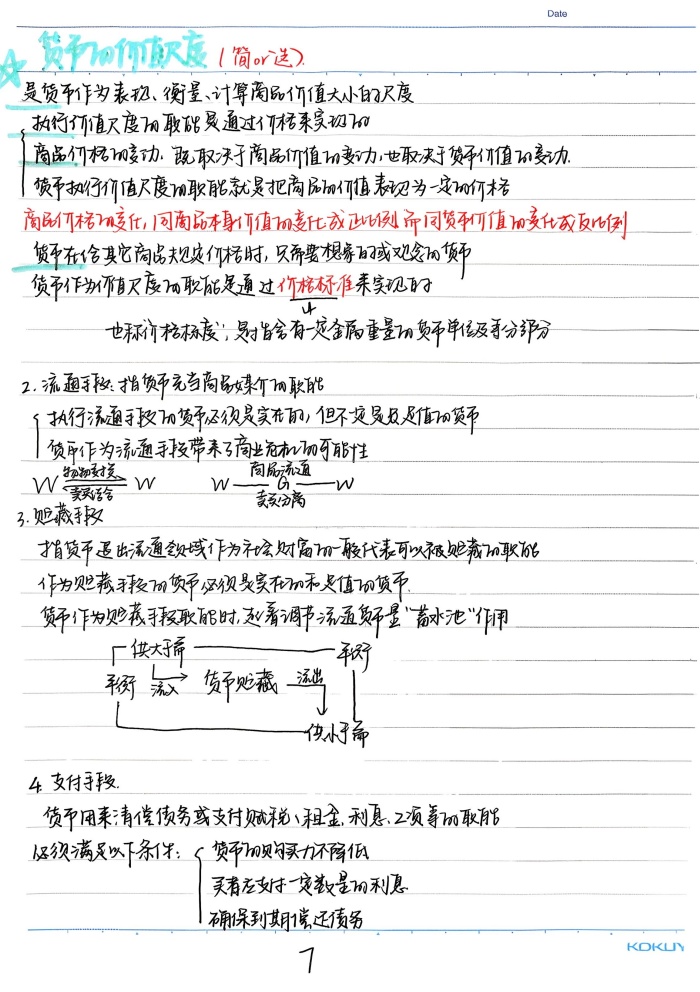 Date
货币的价值尺度 (简or选)
是货币作为表现、衡量、计算商品价值大小的尺度
执行价值尺度的职能是通过价格来实现的
商品价格的变动,既取决于商品价值的变动,也取决于货币价值的变动.
货币执行价值尺度的职能就是把商品的价值表现为一定的价格
商品价格的变化,同商品本身价值的变化成正比例而同货币价值的变化成反比例
货币在给其它商品规定价格时,只需要想象的或观念的货币
货币作为价值尺度的职能是通过价格标准来实现的
也称价格标度,是指含有一定金属重量的货币单位及等分部分
2.流通手段:指货币充当商品媒介的职能
执行流通手段的货币必须是实在的,但不一定是足值的货币
货币作为流通手段带来了商业危机的可能性
物物交换 商品流通
W W W — G — W
买卖结合 买卖分离
3.贮藏手段
指货币退出流通领域作为社会财富的一般代表可以被贮藏的职能
作为贮藏手段的货币必须是实在的和足值的货币.
货币作为贮藏手段职能时,起着调节流通货币量"蓄水池"作用
供大于需 平衡
平衡 流入 货币贮藏 流出
供小于需
4.支付手段.
货币用来清偿债务或支付赋税、租金、利息、工项等的职能
必须满足以下条件: 货币的购买力不降低
买者应支付一定数量的利息
确保到期偿还债务
7
KOKUY